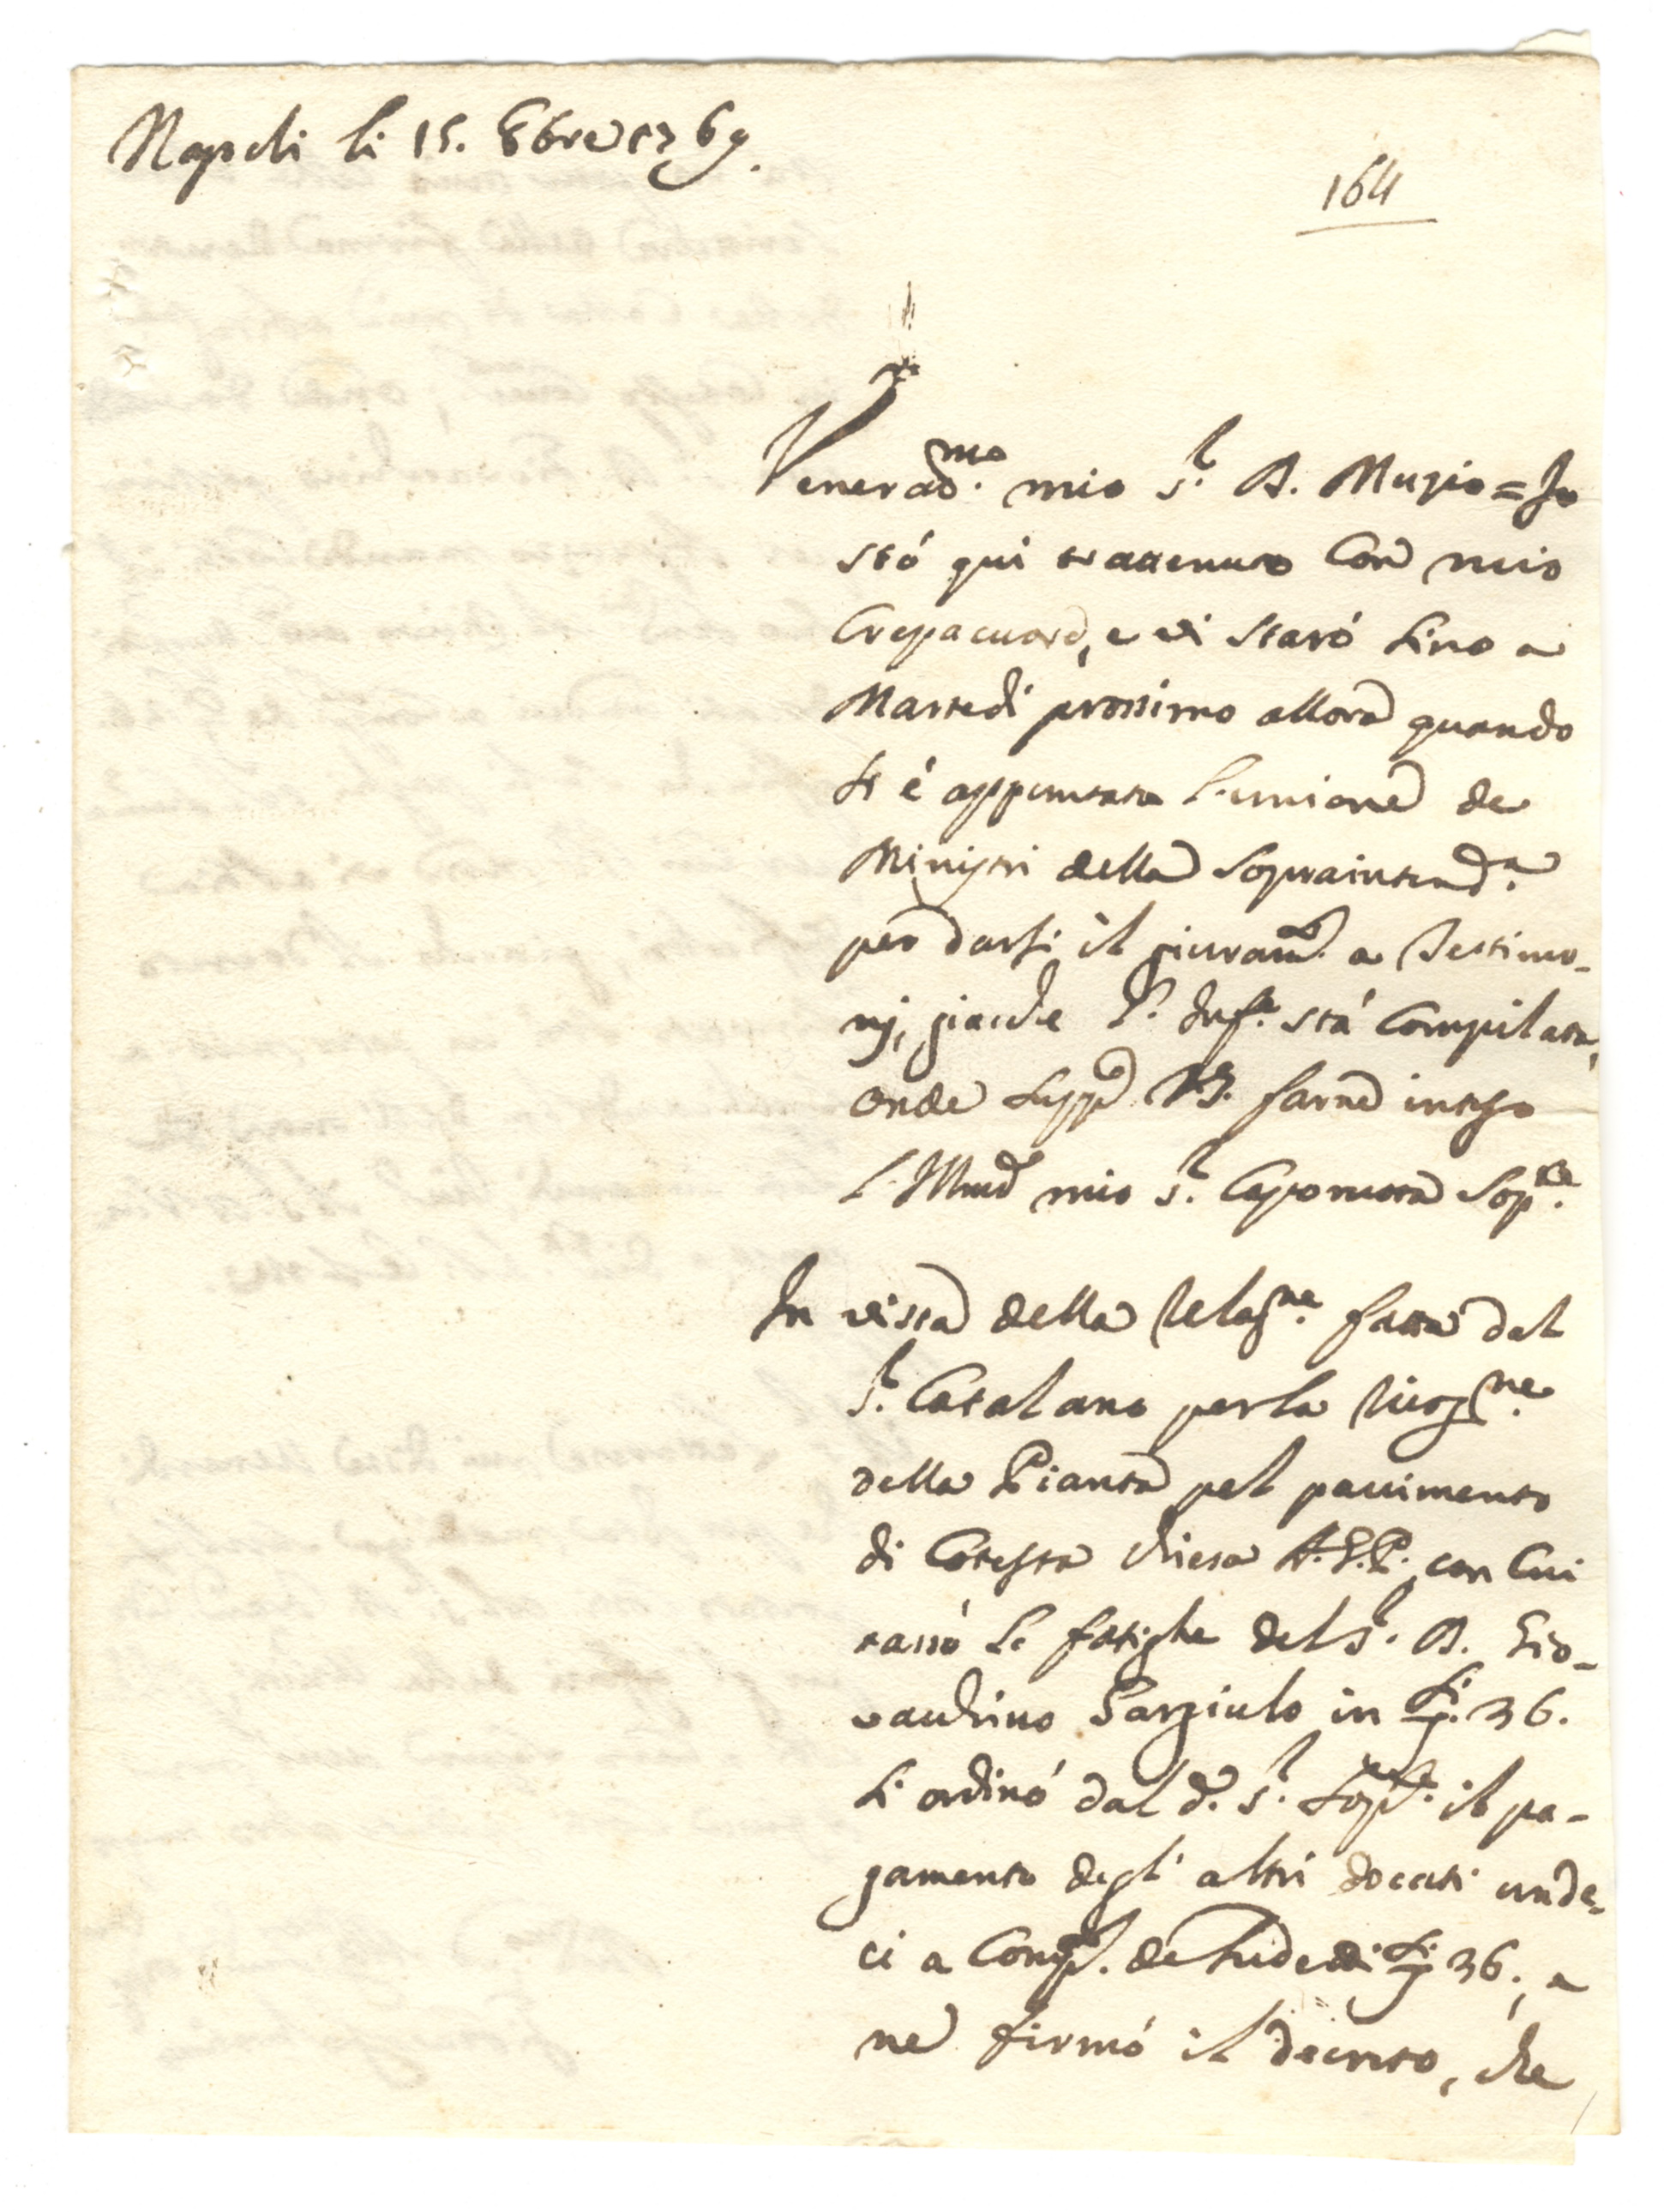 Napoli li 15. 8bre 1769.
164
Venerad.mo mio S.r D. Muzio = Io
stó qui trattenuto con mio
crepacuore, e vi staró sino a
Martedi prossimo allora quando
si é appuntata l'unione de
Ministri della Sopraintend.a
per darsi il giuram.to a Testimo-
nj, giacche l'. Inf.e stá compilata,
onde supp.o V.S. farne inteso
l'Illmo mio S.r Caporuota Sop.te
In vista della relaz.ne fatta dal
S.r Catalano per la ricog.ne
della Pianta pel pavimento
di cotesta chiesa A.G.P., con cui
tassó le fatighe del S.r D. Gio-
vanbino Garziulo in d.ti 36.
si ordinó dal d.o S.r Sop.te il pa-
gamento degli altri docati unde-
ci a comp.to de sud.e di d.ti 36., e
ne firmó il decreto, che